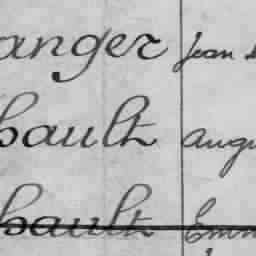 anger Jean
bault Augu
bault Emm